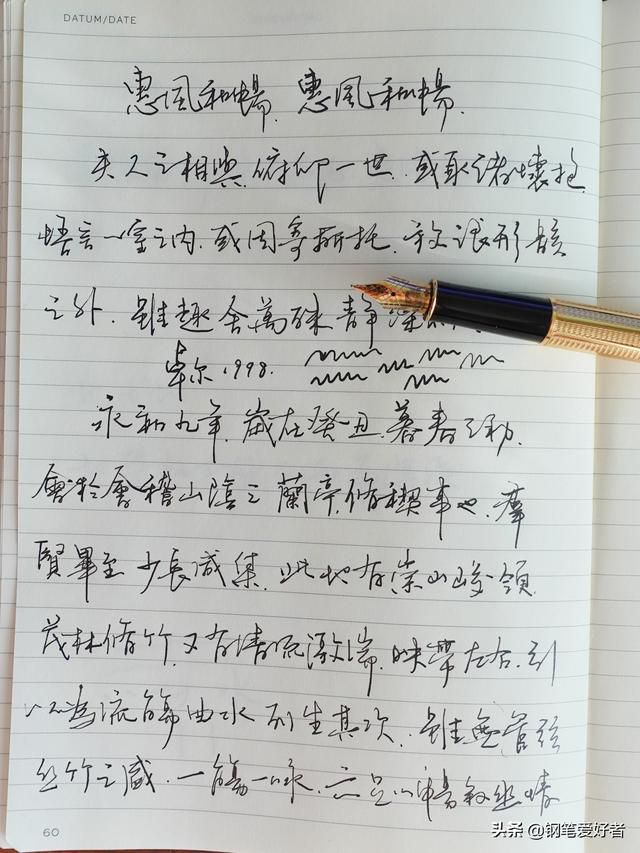 DATUM/DATE
惠風和暢.惠風和暢.
夫人之相與.俯仰一世.或取諸懷抱.
悟言一室之内.或因寄所托.放浪形骸
之外.雖趣舍萬殊静
卓尔.1998.
永和九年.歲在癸丑.暮春之初.
會於會稽山陰之蘭亭.修禊事也.羣
賢畢至少長咸集.此地有崇山峻領.
茂林修竹.又有清流激湍.映帶左右.引
以為流觴曲水列坐其次.雖無管弦
丝竹之盛.一觴一咏.亦足以暢叙幽情
60
头条 @钢笔爱好者